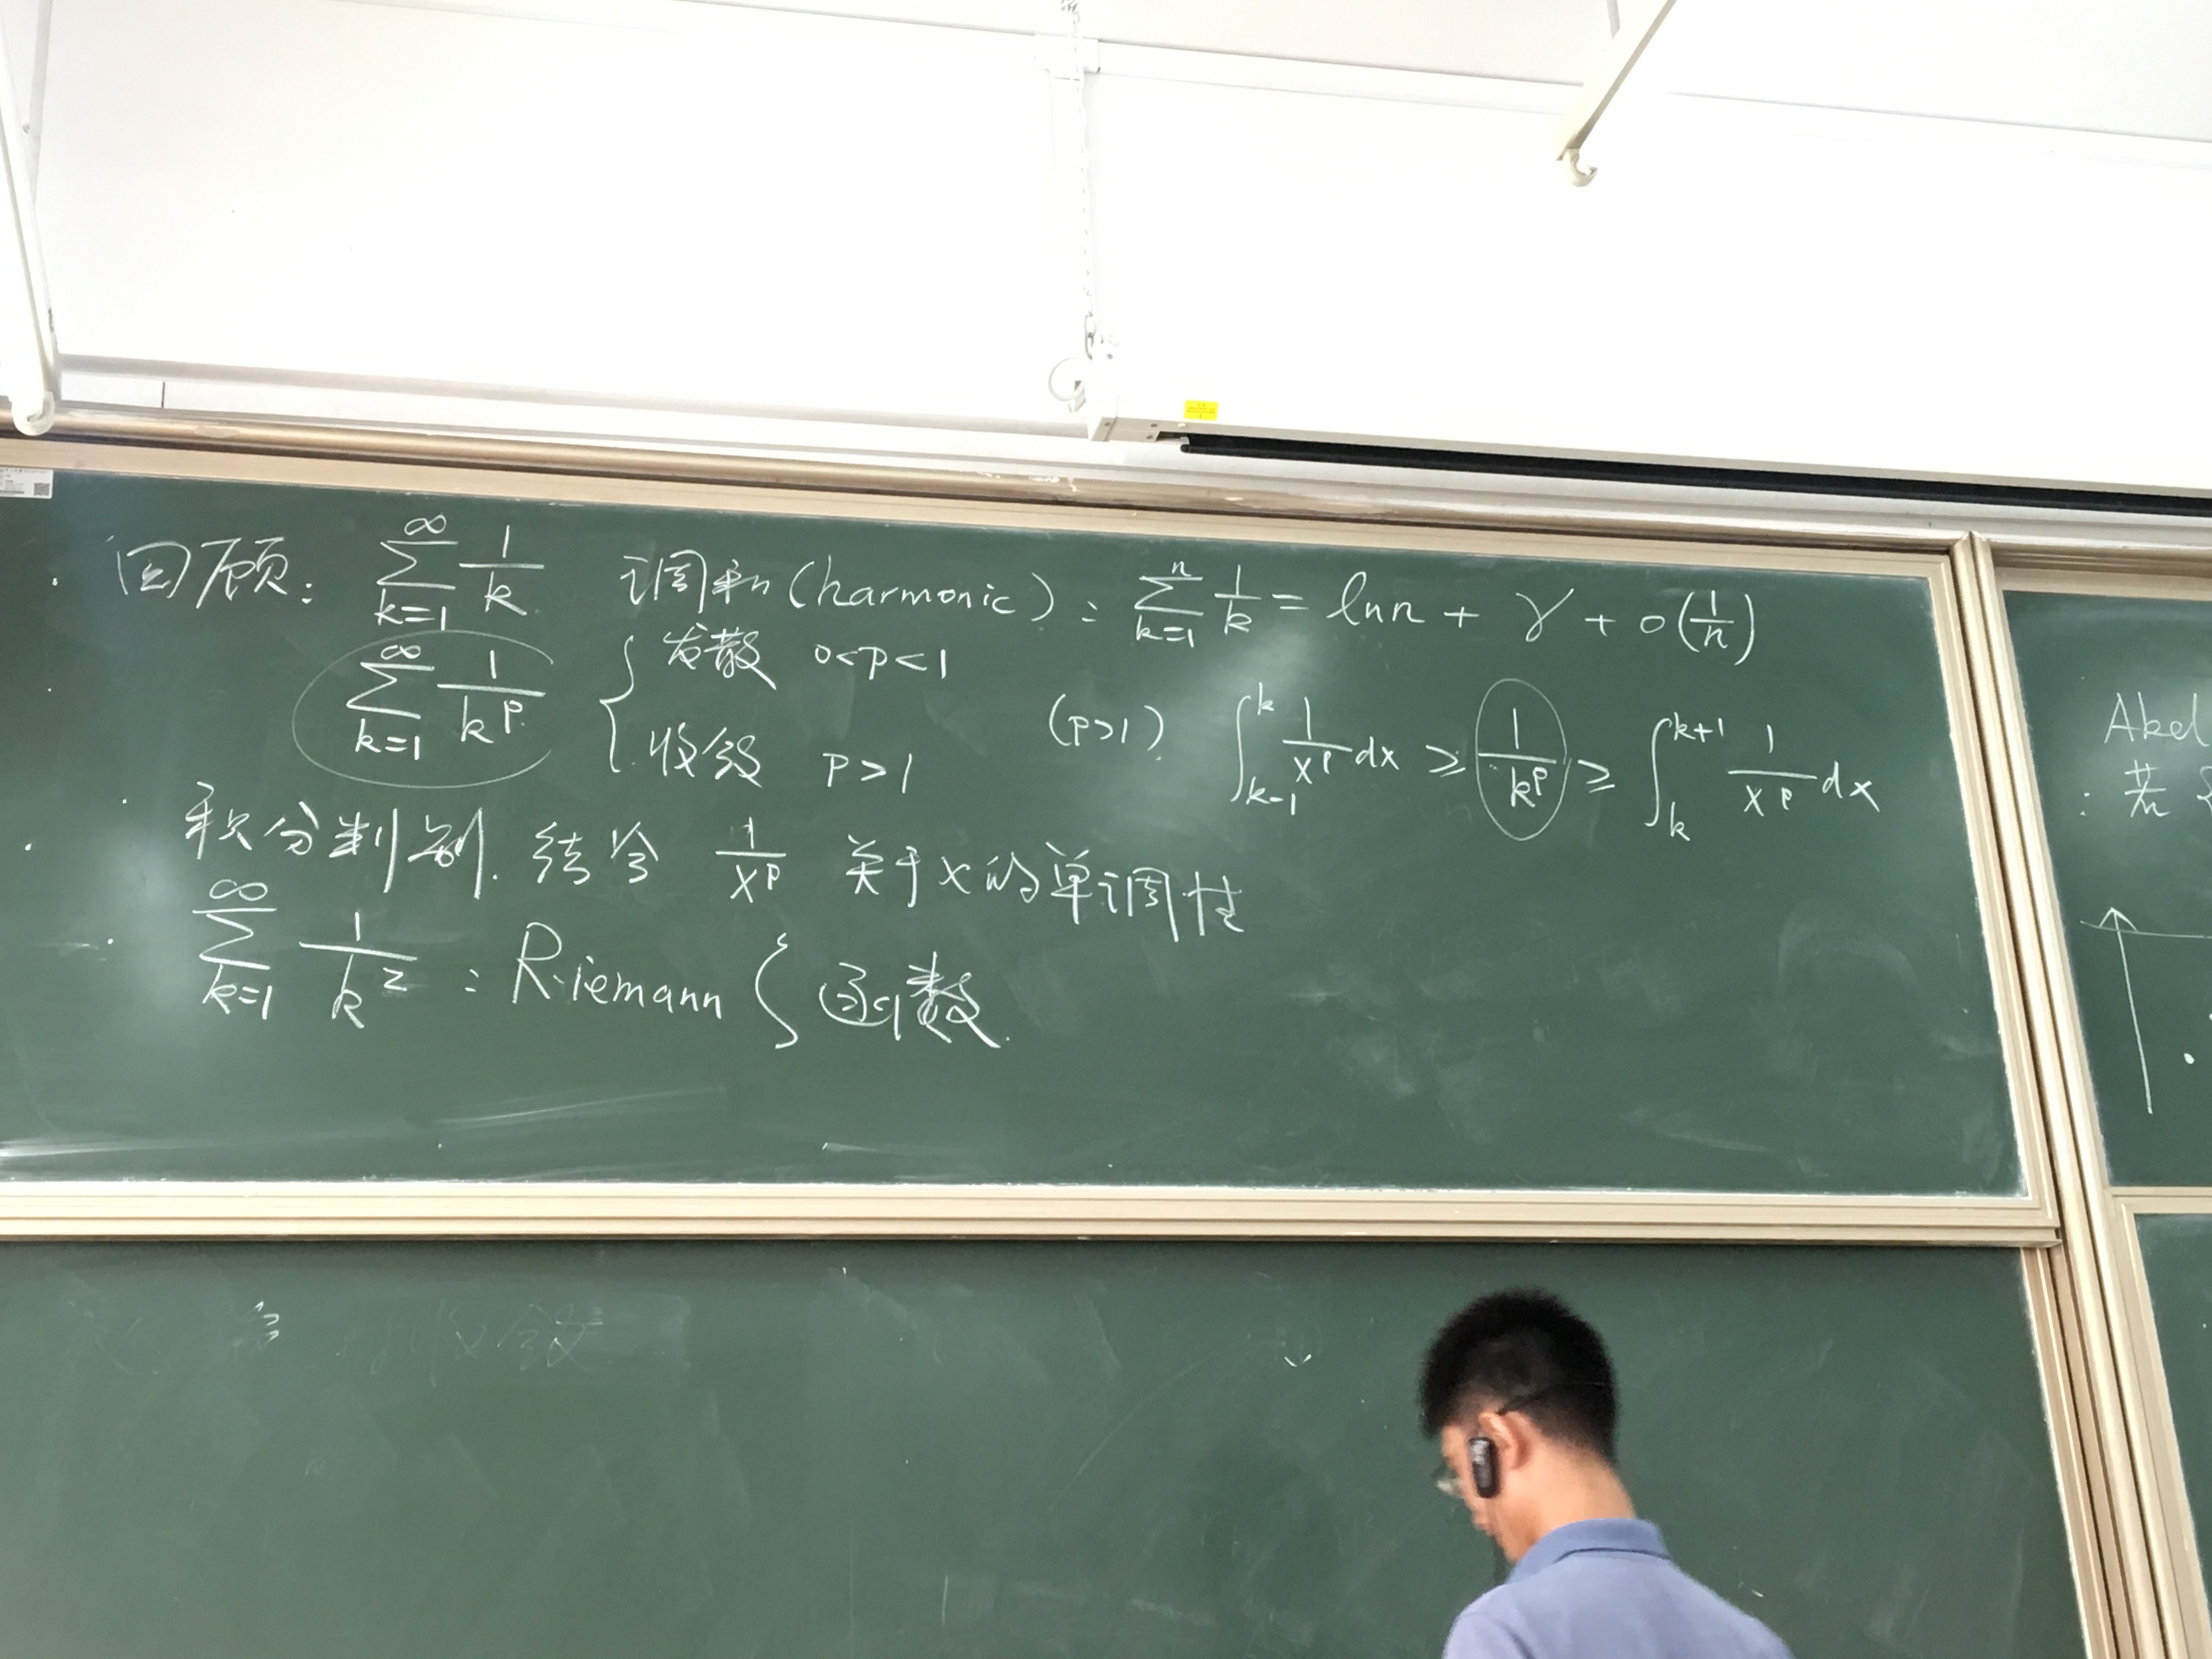 回顾: $\sum_{k=1}^{\infty} \frac{1}{k}$ 调和(harmonic): $\sum_{k=1}^{n} \frac{1}{k} = \ln n + \gamma + o(\frac{1}{n})$
$\sum_{k=1}^{\infty} \frac{1}{k^p}$ { 发散 0<p<1
收敛 p>1
(p>1) $\int_{k-1}^{k} \frac{1}{x^p} dx \geq \frac{1}{k^p} \geq \int_{k}^{k+1} \frac{1}{x^p} dx$
积分判别. 结合 $\frac{1}{x^p}$ 关于x的单调性
$\sum_{k=1}^{\infty} \frac{1}{k^2}$ : Riemann ζ 函数.
Abel
: 若